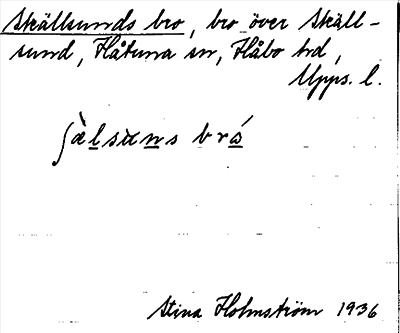 Skällsunds bro, bro över Skäll-
sund, Håtuna sn, Håbo hd,
Upps. l.
ʃὰlsuns brá
Stina Holmström 1936